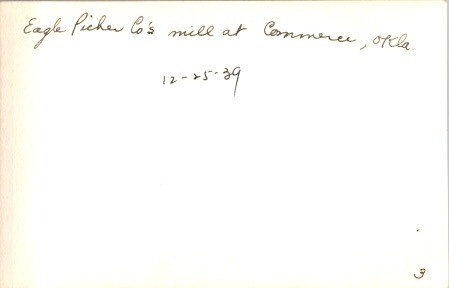 Eagle Picher Co's mill at Commerce, Okla.
12-25-39
3